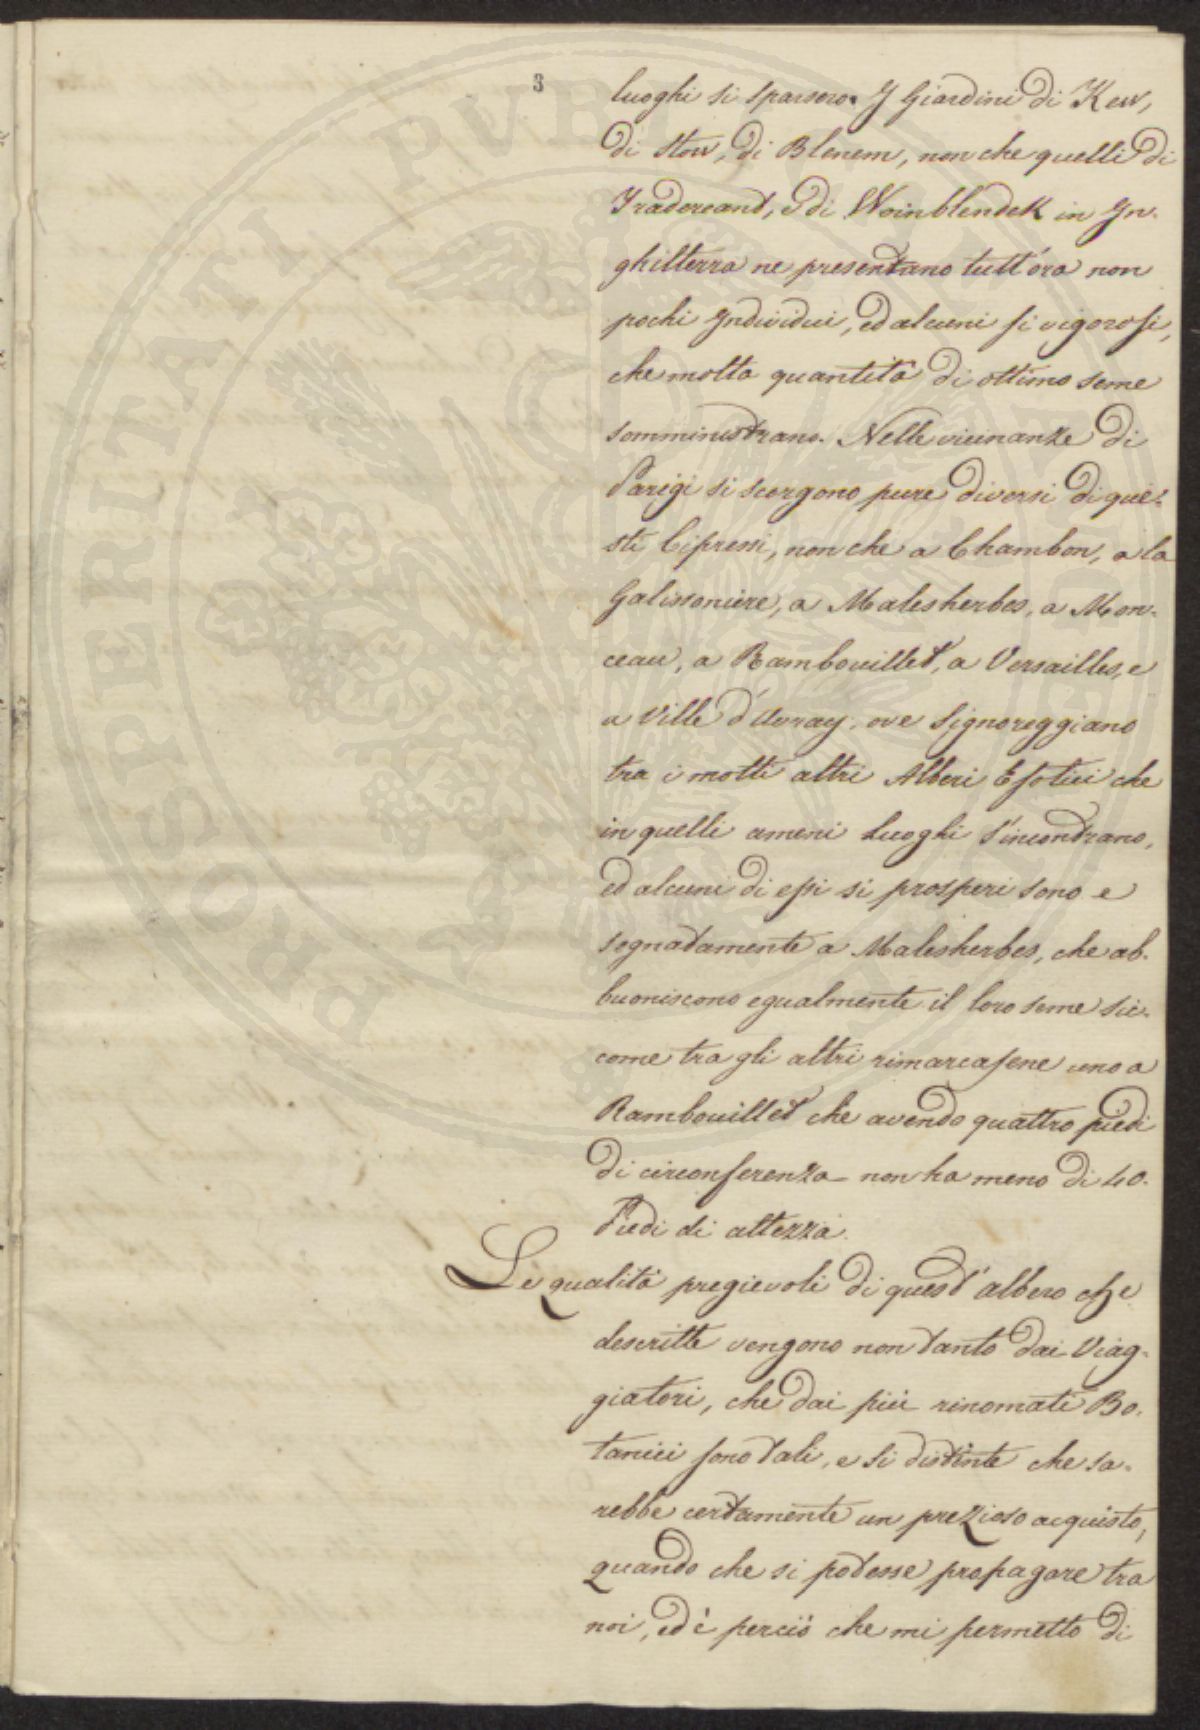 3
luoghi si sparsero. I Giardini di Kew,
di Stow, di Blenem, non che quelli di
Tradescant, e di Woinblendek in In-
ghilterra ne presentano tutt'ora non
pochi Individui, ed alcuni si vigorosi,
che molta quantità di ottimo seme
somministrano. Nelle vicinanze di
Parigi si scorgono pure diversi di que-
sti Cipressi, non che a Chambon, a la
Galissoniere, a Malesherbes, a Mon-
ceau, a Rambouillet, a Versailles, e
a Ville d'Avray, ove signoreggiano
tra i molti altri Alberi Esotici che
in quelli ameni Luoghi s'incontrano,
ed alcuni di essi si prosperi sono e
segnatamente a Malesherbes, che ab-
buoniscono egualmente il loro seme sic-
come tra gli altri rimarcasene uno a
Rambouillet che avendo quattro piedi
di circonferenza non ha meno di 40.
Piedi di altezza.
Le qualità pregievoli di quest'albero che
descritte vengono non tanto dai Viag-
giatori, che dai più rinomati Bo-
tanici sono tali, e si distinte che sa-
rebbe certamente un prezioso acquisto,
quando che si potesse propagare tra
noi, ed è perciò che mi permetto di
PROSPERITATI PUBLICAE